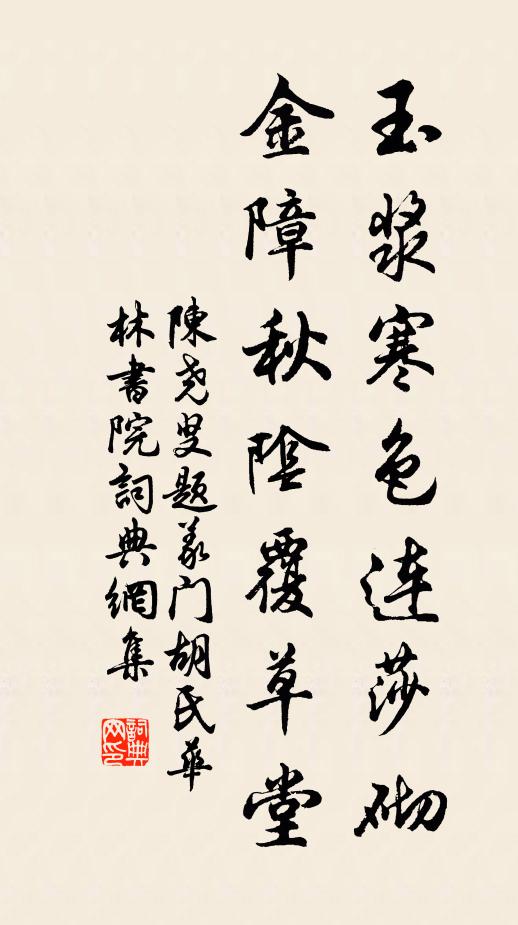 玉漿寒色連莎砌
金障秋陰覆草堂
陳尧叟題義门胡氏華
林書院詞典網集
詞典网印